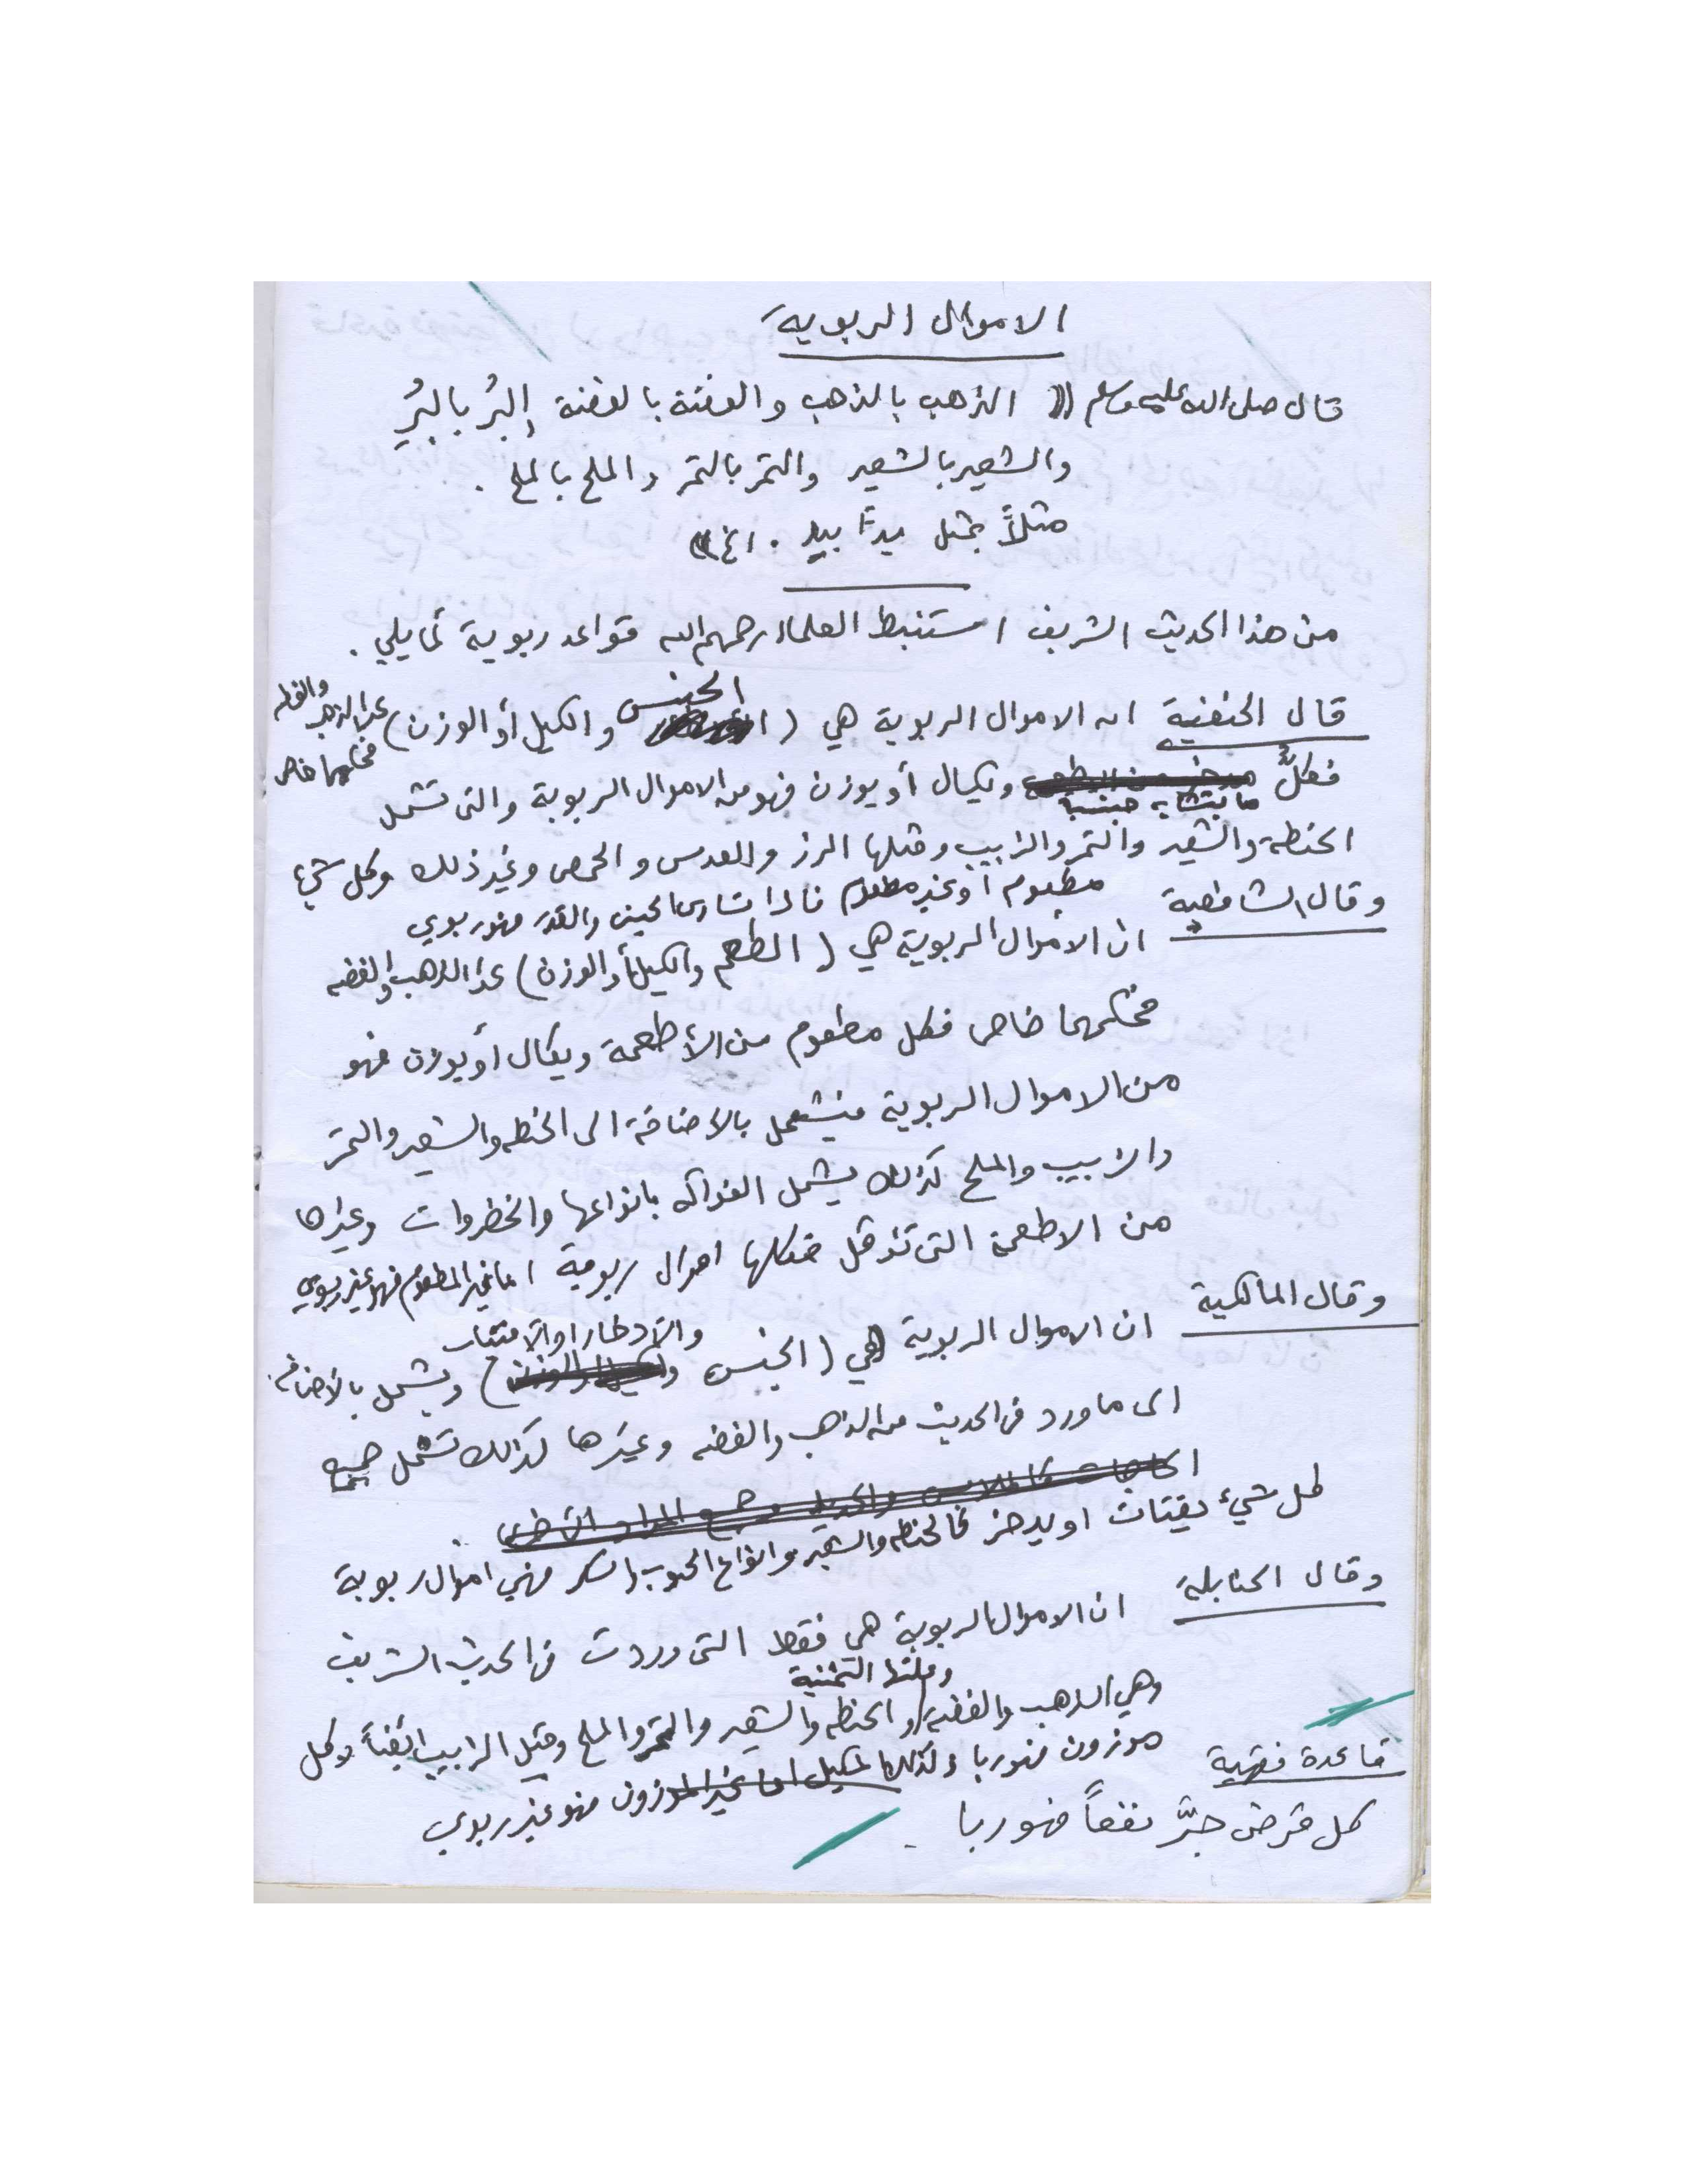 الاموال الربوية
قال صلى الله عليه وسلم (( الذهب بالذهب والفضة بالفضة والبُر بالبُرِ
والشعير بالشعير والتمر بالتمر والملح بالملح .
مثلاً بمثل يداً بيد . الخ ))
من هذا الحديث الشريف استنبط العلماء رحمهم الله قواعد ربوية كما يلي .
قال الحنفية ان الاموال الربوية هي ( الجنس والكيل أو الوزن ) عدا الذهب والفضه
فحكمهما خاص
فكلُّ ما يتشابه جنسياً ويكال أو يوزن فهو من الاموال الربوية والتى تشمل
الحنطة والشعير والتمر والزبيب ومثلها الرز والعدس والحمص وغير ذلك وكل شيء
مطعوم أو غير مطعوم فاذا تساوى الجنس والقدر فهو ربوي
وقال الشافعية ان الأموال الربوية هي ( الطعم والكيل أو الوزن ) عدا الذهب والفضه
فحكمهما خاص فكل مطعوم من الأطعمة ويكال أو يوزن فهو
من الاموال الربوية فيشمل بالاضافة الى الحنطه والشعير والتمر
والزبيب والملح كذلك يشمل الفواكه بانواعها والخضروات وغيرها
من الاطعمة التى تؤكل فكلها اموال ربوية اما غير المطعوم فهو غير ربوي
وقال المالكية ان الاموال الربوية هي ( الجنس والادخار او الاقتيات ) ويشمل بالاضافه
الى ما ورد في الحديث من الذهب والفضه وغيرها كذلك تشمل جميع
كل شيء يقتات او يدخر كالحنطه والشعير وانواع الحبوب والسكر فهي اموال ربوية
وقال الحنابلة ان الاموال الربوية هي فقط التى وردت في الحديث الشريف
وهي الذهب والفضة وعلتها الثمنية والحنطه والشعير والتمر والملح ومثل الزبيب ايضاً وكل
موزون فهو ربا وكذلك المكيل اما غير الموزون فهو غير ربوي
قاعدة فقهية
كل قرض جرَّ نفعاً فهو ربا .